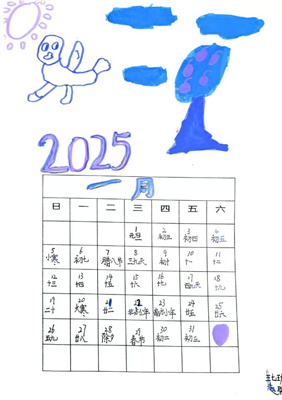 2025
一月
日 一 二 三 四 五 六
1 2 3 4
元旦 初三 初四 初五
5 6 7 8 9 10 11
小寒 初七 腊八节 三九天 初十 十一 十二
12 13 14 15 16 17 18
十三 十四 十五 十六 十八 四九天 十九
19 20 21 22 23 24 25
二十 大寒 廿二 北方小年 南方小年 廿五 廿六
26 27 28 29 30 31
五九 廿八 除夕 春节 初二 初三